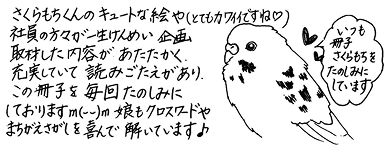 さくらもちくんの キュートな絵や(とてもカワイイですね♡)
社員の方々が一生けんめい 企画
取材した内容が あたたかく、
充実していて 読みごたえがあり、
この冊子を 毎回 たのしみに
しております m(--)m 娘もクロスワードや
まちがえさがしを 喜んで 解いています♪
いつも
冊子
さくらもちを
たのしみに
しています